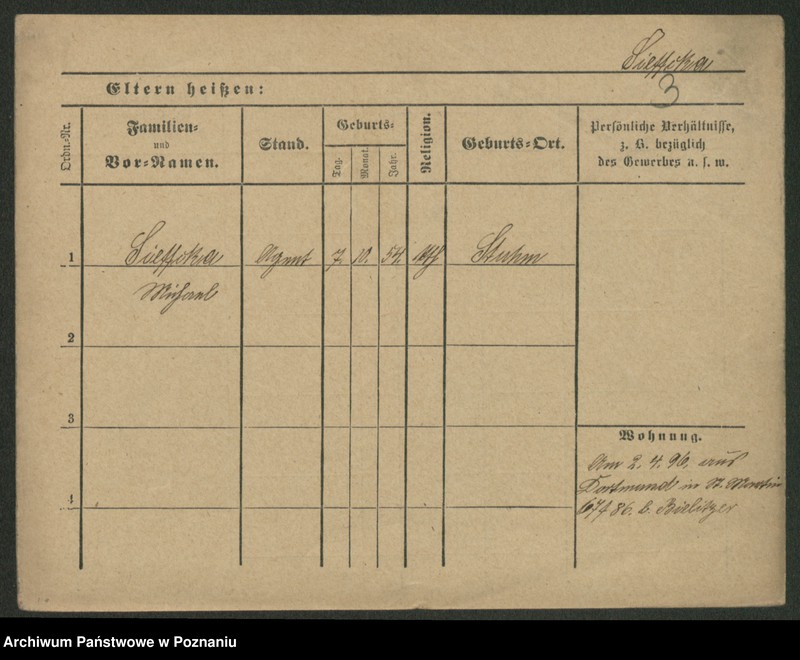 Sieffcka
3
Eltern heißen:
Ordn.-Nr.
Familien-
und
Vor-Namen.
Stand.
Geburts-
Tag.
Monat.
Jahr.
Religion.
Geburts-Ort.
Persönliche Verhältnisse,
z. B. bezüglich
des Gewerbes u. s. w.
1
Sieffcka
Agent
7.
10.
54.
Stuhm
Michael
2
3
Wohnung.
Am 2. 4. 96. aus
Dortmund in St. Martin
b. Bielitzer
4
Archiwum Państwowe w Poznaniu